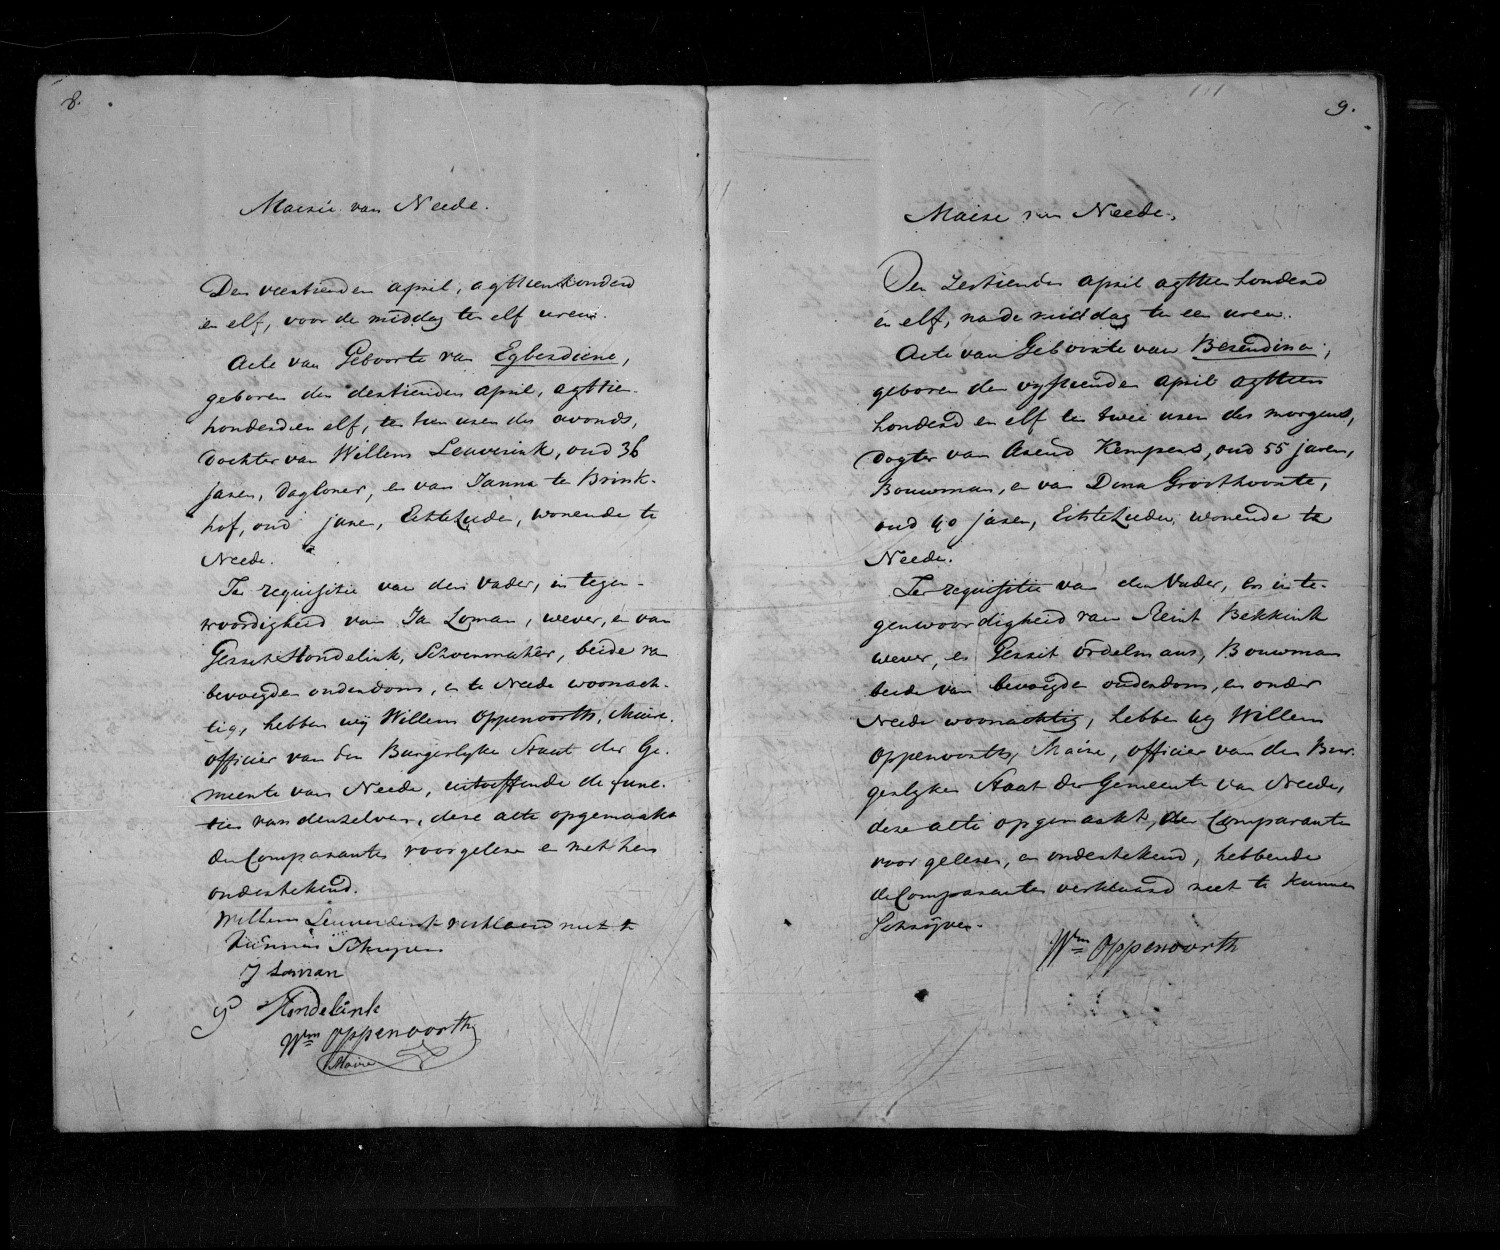 8.
Mairie van Neede.
Den veertienden april, agttienhonderd
en elf, voor de middag te elf uren.
Acte van Geboorte van Egberdiene,
geboren den dertienden april, agttien-
honderd en elf, te tien uren des avonds,
dochter van Willem Leuverink, oud 36
jaren, dagloner, en van Janna te Brink-
hof, oud jare, Echtelieden, wonende te
Neede.
Ter requisitie van den vader, in tegen-
woordigheid van Jan Loman, wever, en van
Gerrit Hondelink, Schoenmaker, beide van
bevoegden ouderdom, en te Neede woonach-
tig, hebben wij Willem Oppenoorth, Maire,
officier van den Burgerlyke Staat der Ge-
meente van Neede, uitoeffende de func-
tien van denzelven, deze acte opgemaakt
den Comparanten voorgelesen en met hen
ondertekend.
Willem Leuverdink verklaard niet te
kunnen Schryven
J Loman
G Hondelink
Wm Oppenoorth
Maire
9.
Maire van Neede.
Den Zestienden april agttienhonderd
en elf, na de middag te een uren.
Acte van Geboorte van Berendina,
geboren den vyftienden april agttien
honderd en elf te twee uren des morgens,
dogter van Arend Kempers, oud 55 jaren,
Bouwman, en van Dona Groothoonte,
oud 40 jaren, Echtelieden, wonende te
Neede.
Ter requisitie van den Vader, en in te-
genwoordigheid van Reint Bekkink
wever, en Gerrit Ordelmans, Bouwman
beide van bevoegden ouderdom, en onder
Neede woonachtig, hebben wy Willem
Oppenoorth, Maire, officier van den Bur-
gerlyken Staat der Gemeente van Neede,
deze acte opgemaakt, den Comparanten
voorgelesen, en ondertekend, hebbende
de Comparanten verklaard niet te kunnen
Schrijven.
Wm Oppenoorth